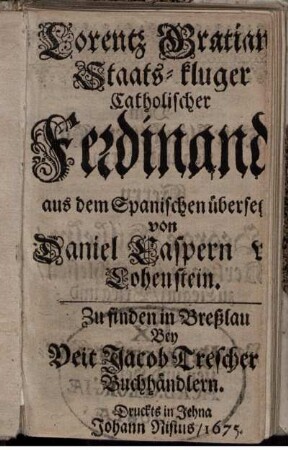 Lorentz Gratian
Staats-kluger
Catholischer
Ferdinand
aus dem Spanischen überse
von
Daniel Caspern v
Lohenstein.
Zu finden in Breßlau
Bey
Veit Jacob Trescher
Buchhändlern.
Druckts in Jehna
Johann Nisius / 1675.